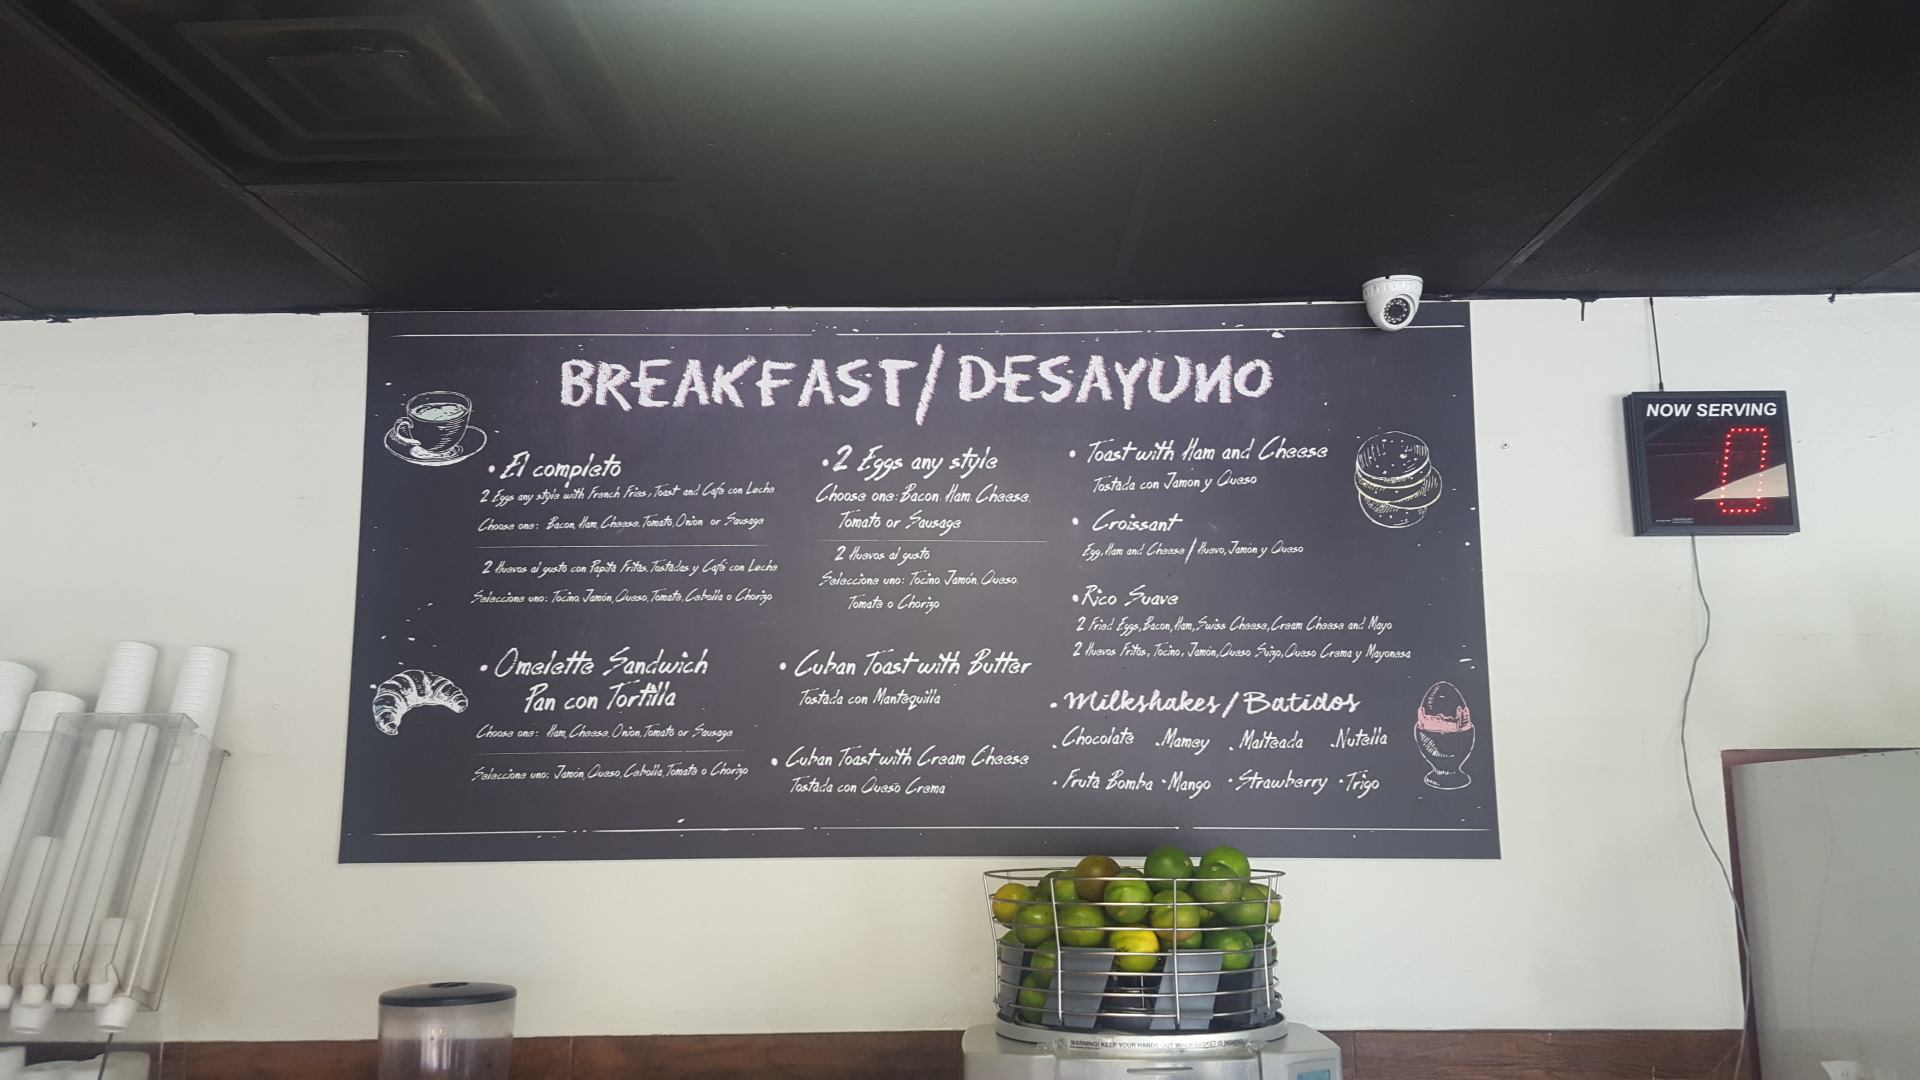 BREAKFAST/DESAYUNO
• El completo
2 Eggs any style with French Fries, Toast and Café con Leche
Choose one: Bacon, Ham, Cheese, Tomato, Onion or Sausage
2 Huevos al gusto con Papita Fritas, Tostadas y Café con Leche
Seleccione uno: Tocino, Jamón, Queso, Tomate, Cebolla o Chorizo
• Omelette Sandwich
Pan con Tortilla
Choose one: Ham, Cheese, Onion, Tomato or Sausage
Seleccione uno: Jamón, Queso, Cebolla, Tomate o Chorizo
• 2 Eggs any style
Choose one: Bacon, Ham, Cheese,
Tomato or Sausage
2 Huevos al gusto
Seleccione uno: Tocino, Jamón, Queso,
Tomate o Chorizo
• Cuban Toast with Butter
Tostada con Mantequilla
• Cuban Toast with Cream Cheese
Tostada con Queso Crema
• Toast with Ham and Cheese
Tostada con Jamon y Queso
• Croissant
Egg, Ham and Cheese / Huevo, Jamón y Queso
• Rico Suave
2 Fried Eggs, Bacon, Ham, Swiss Cheese, Cream Cheese and Mayo
2 Huevos Fritos, Tocino, Jamón, Queso Suizo, Queso Crema y Mayonesa
• Milkshakes / Batidos
. Chocolate . Mamey . Malteada . Nutella
• Fruta Bomba • Mango • Strawberry • Trigo
NOW SERVING
0
WARNING! KEEP YOUR HANDS OUT WHEN BASKET IS MOVING